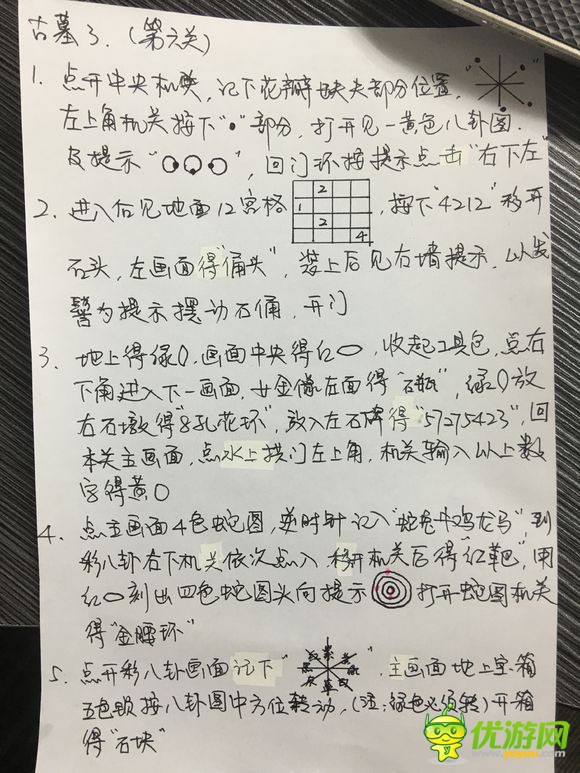 古墓3.(第六关)
1. 点开中央机关,记下花瓣缺失部分位置,
左上角机关按下"•"部分,打开见一黄色八卦图.
及提示" ",回门环按提示点击"右下左"
2. 进入后见地面12宫格 2 1 2 4 ,按下"4212"移开
石头,左画面得"俑头",装上后见右墙提示,以发
髻为提示摆动石俑,开门
3. 地上得绿0,画面中央得红○,收起工具包,点右
下角进入下一画面,女金像左面得"石瓶",绿0放
右石墩得"8孔花环",放入左石碑得"57275423",回
本关主画面,点水上拱门左上角,机关输入以上数
字得黄0
4. 点主画面4色蛇图,逆时针记入"蛇兔牛鸡龙马"到
彩八卦右下机关依次点入 移开机关后得"红靶",用
红○刻出四色蛇图头向提示 打开蛇图机关
得"金腰环"
5. 点开彩八卦画面记下" ",主画面地上宝箱
五色锁按八卦图中方位转动,(注:绿色必须转)开箱
得"石块"
优游网